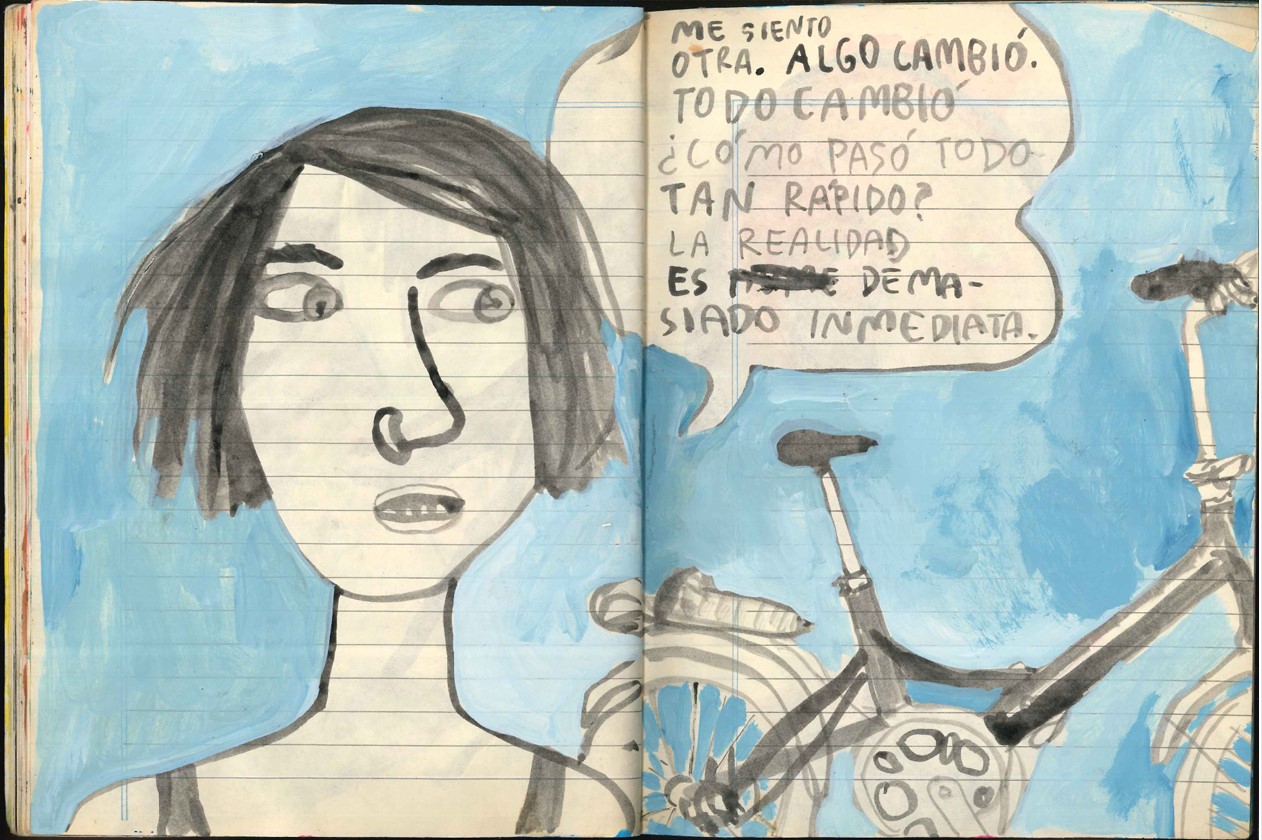 ME SIENTO
OTRA. ALGO CAMBIÓ.
TODO CAMBIÓ
¿CÓMO PASÓ TODO
TAN RÁPIDO?
LA REALIDAD
ES DEMA-
SIADO INMEDIATA.